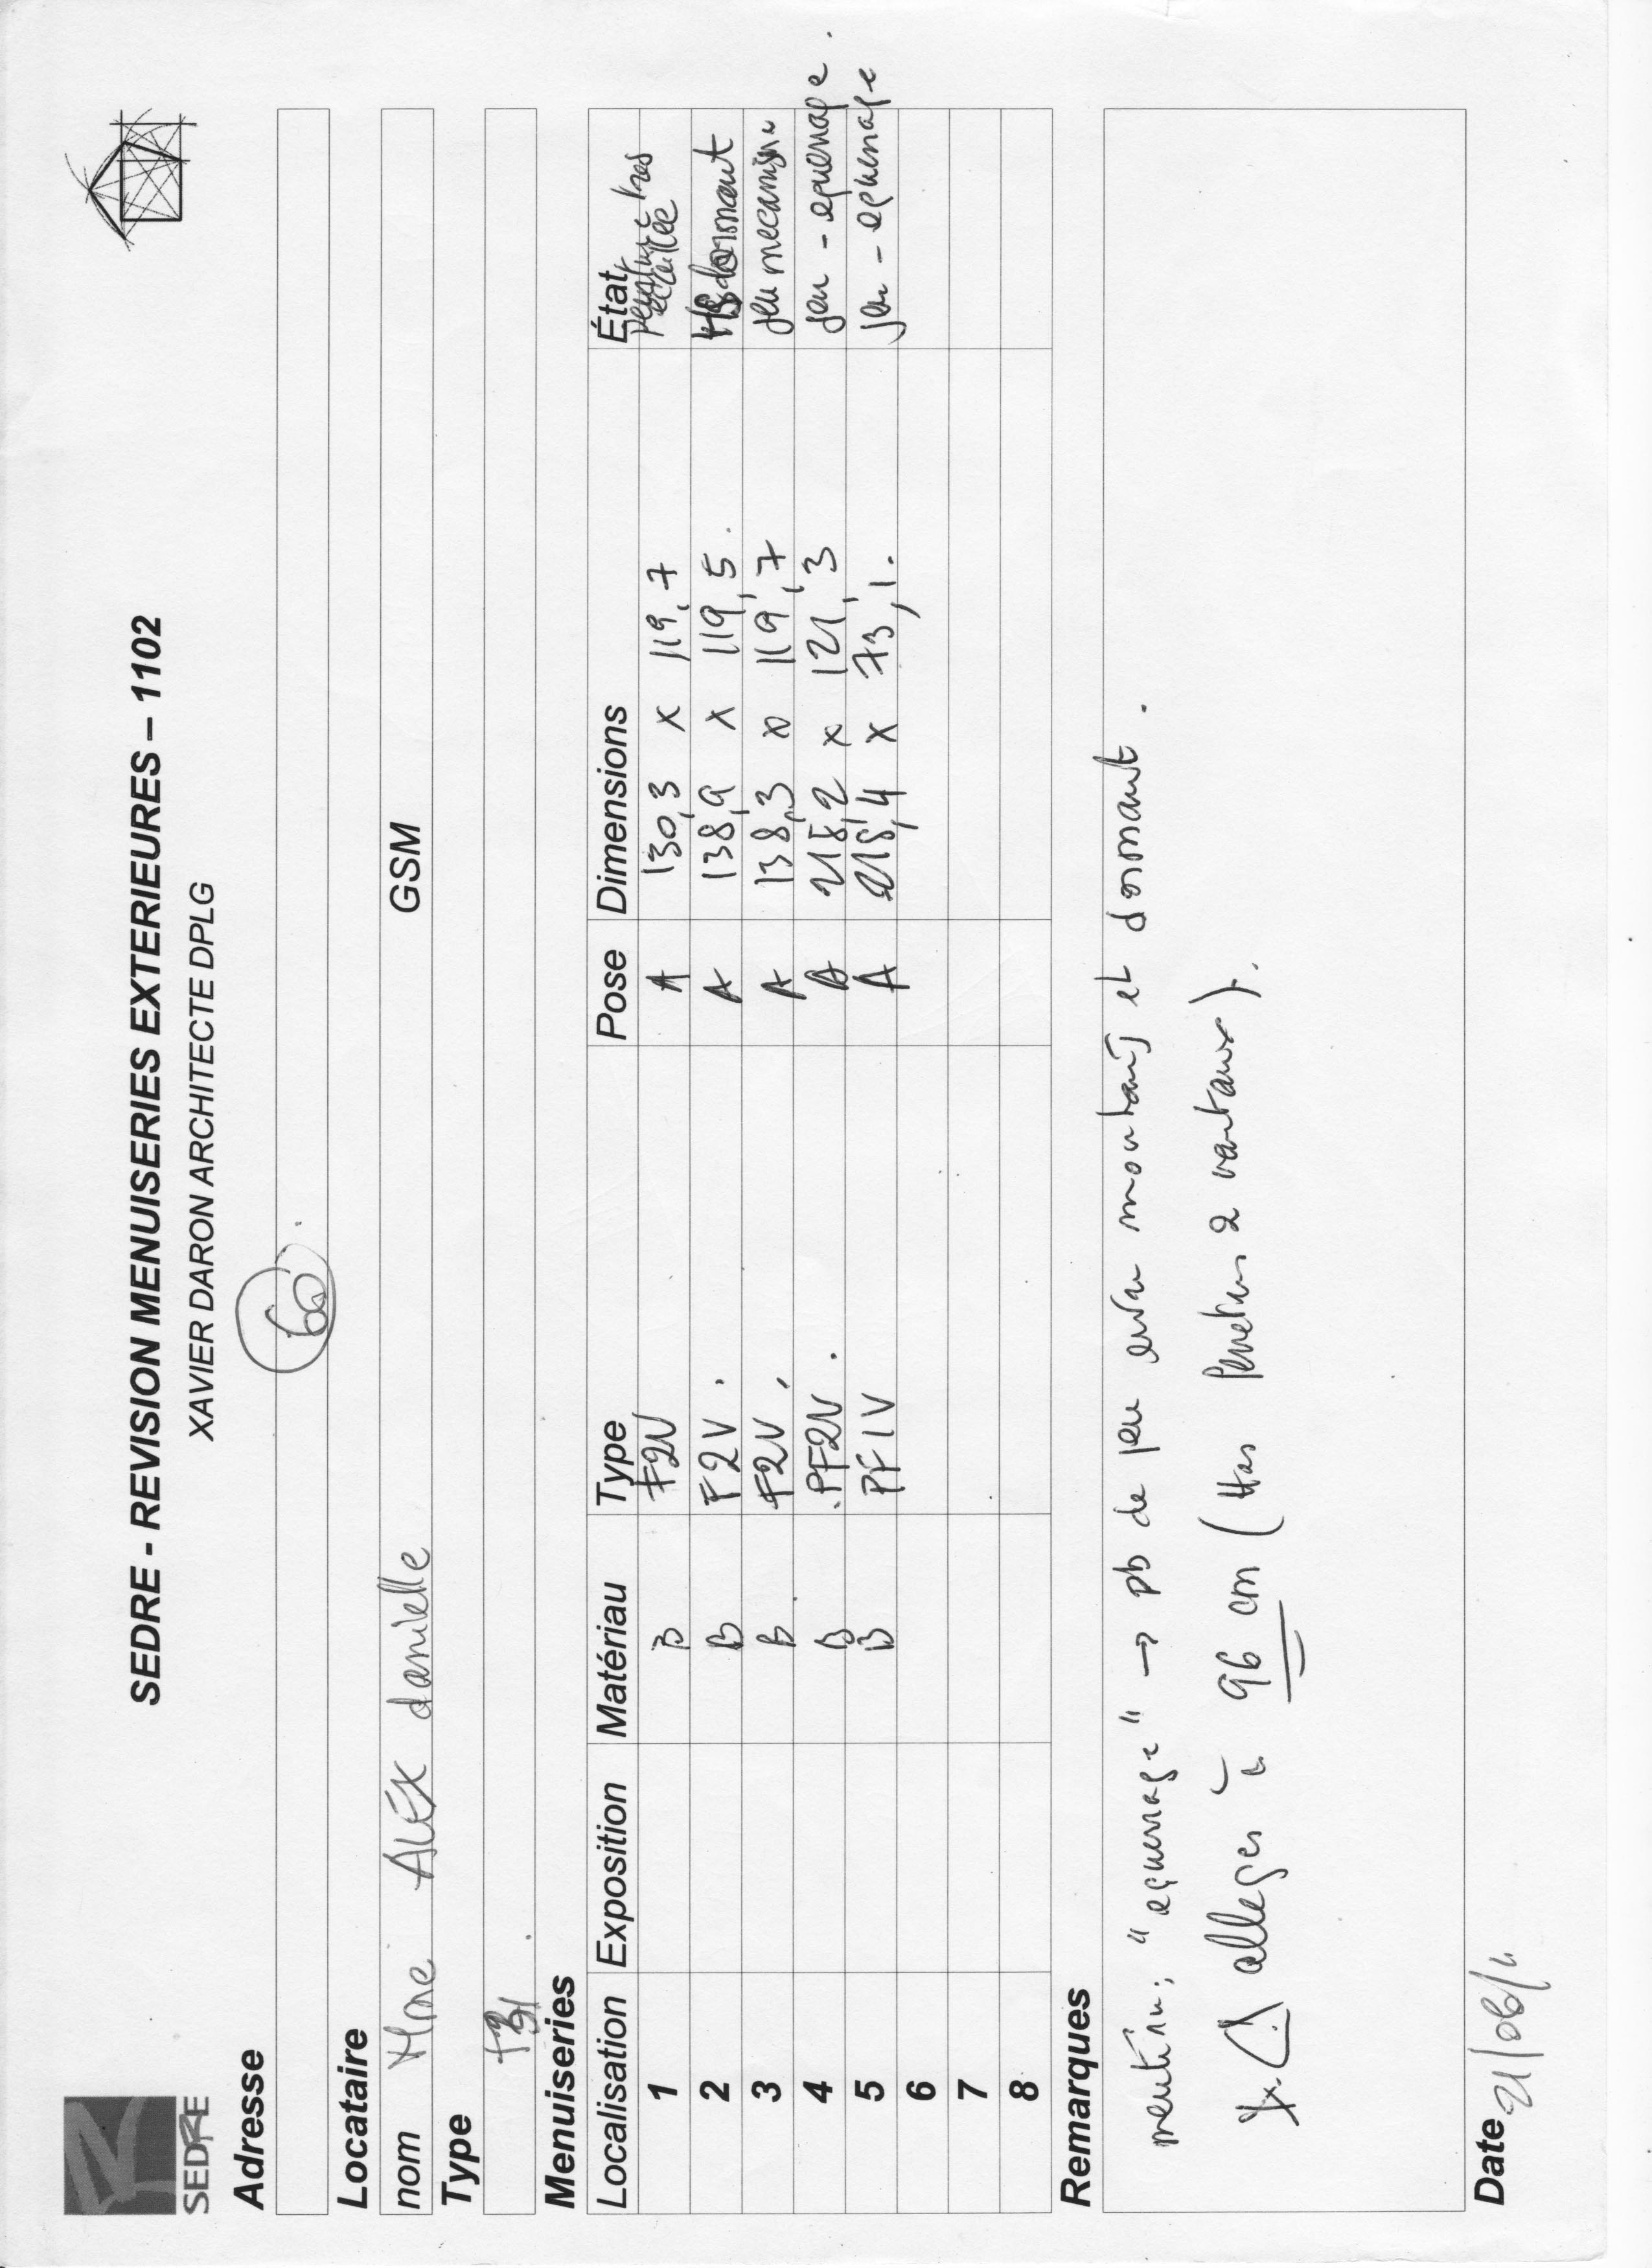 SEDRE
SEDRE - REVISION MENUISERIES EXTERIEURES – 1102
XAVIER DARON ARCHITECTE DPLG
Adresse
60
Locataire
nom Mme ALEX danielle GSM
Type
Menuiseries
Localisation Exposition Matériau Type Pose Dimensions État
1 B F2V A 130,3 x 119,7 peinture tres
2 B F2V. A 138,9 x 119,5. HS dormant
3 B F2V. A 138,3 x 119,7 jeu mecanisme
4 B PF2V. A 218,2 x 121,3 jeu - equerrage.
5 B PF1V A 218,4 x 73,1. jeu - equerrage
6
7
8
Remarques
"equerrage" → pb de jeu entre montant et dormant.
alleges à 96 cm ( fenetres 2 vantaux).
Date 21/06/11